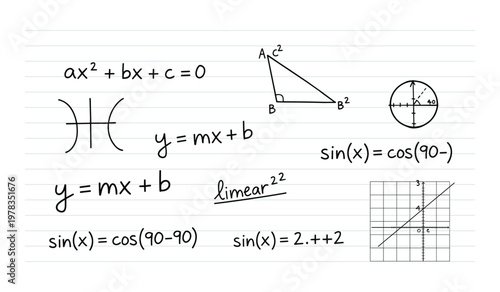 ax² + bx + c = 0
A c²
B B²
40
y = mx + b
sin(x) = cos(90-)
y = mx + b
limear²²
3
4
0
sin(x) = cos(90-90)
sin(x) = 2.++2
Adobe Stock | #1978351676